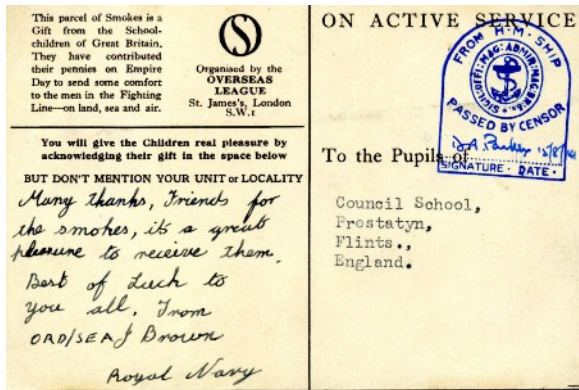 This parcel of Smokes is a
Gift from the School-
children of Great Britain.
They have contributed
their pennies on Empire
Day to send some comfort
to the men in the Fighting
Line—on land, sea and air.
OS
Organised by the
OVERSEAS
LEAGUE
St. James's, London
S.W.1
You will give the Children real pleasure by
acknowledging their gift in the space below
BUT DON'T MENTION YOUR UNIT or LOCALITY
Many thanks, Friends for
the smokes, it's a great
pleasure to receive them.
Best of Luck to
you all. From
ORD/SEA J Brown
Royal Navy
ON ACTIVE SERVICE
FROM H.M. SHIP
PASSED BY CENSOR
SIGNATURE · DATE ·
To the Pupils of
Council School,
Prostatyn,
Flints.,
England.